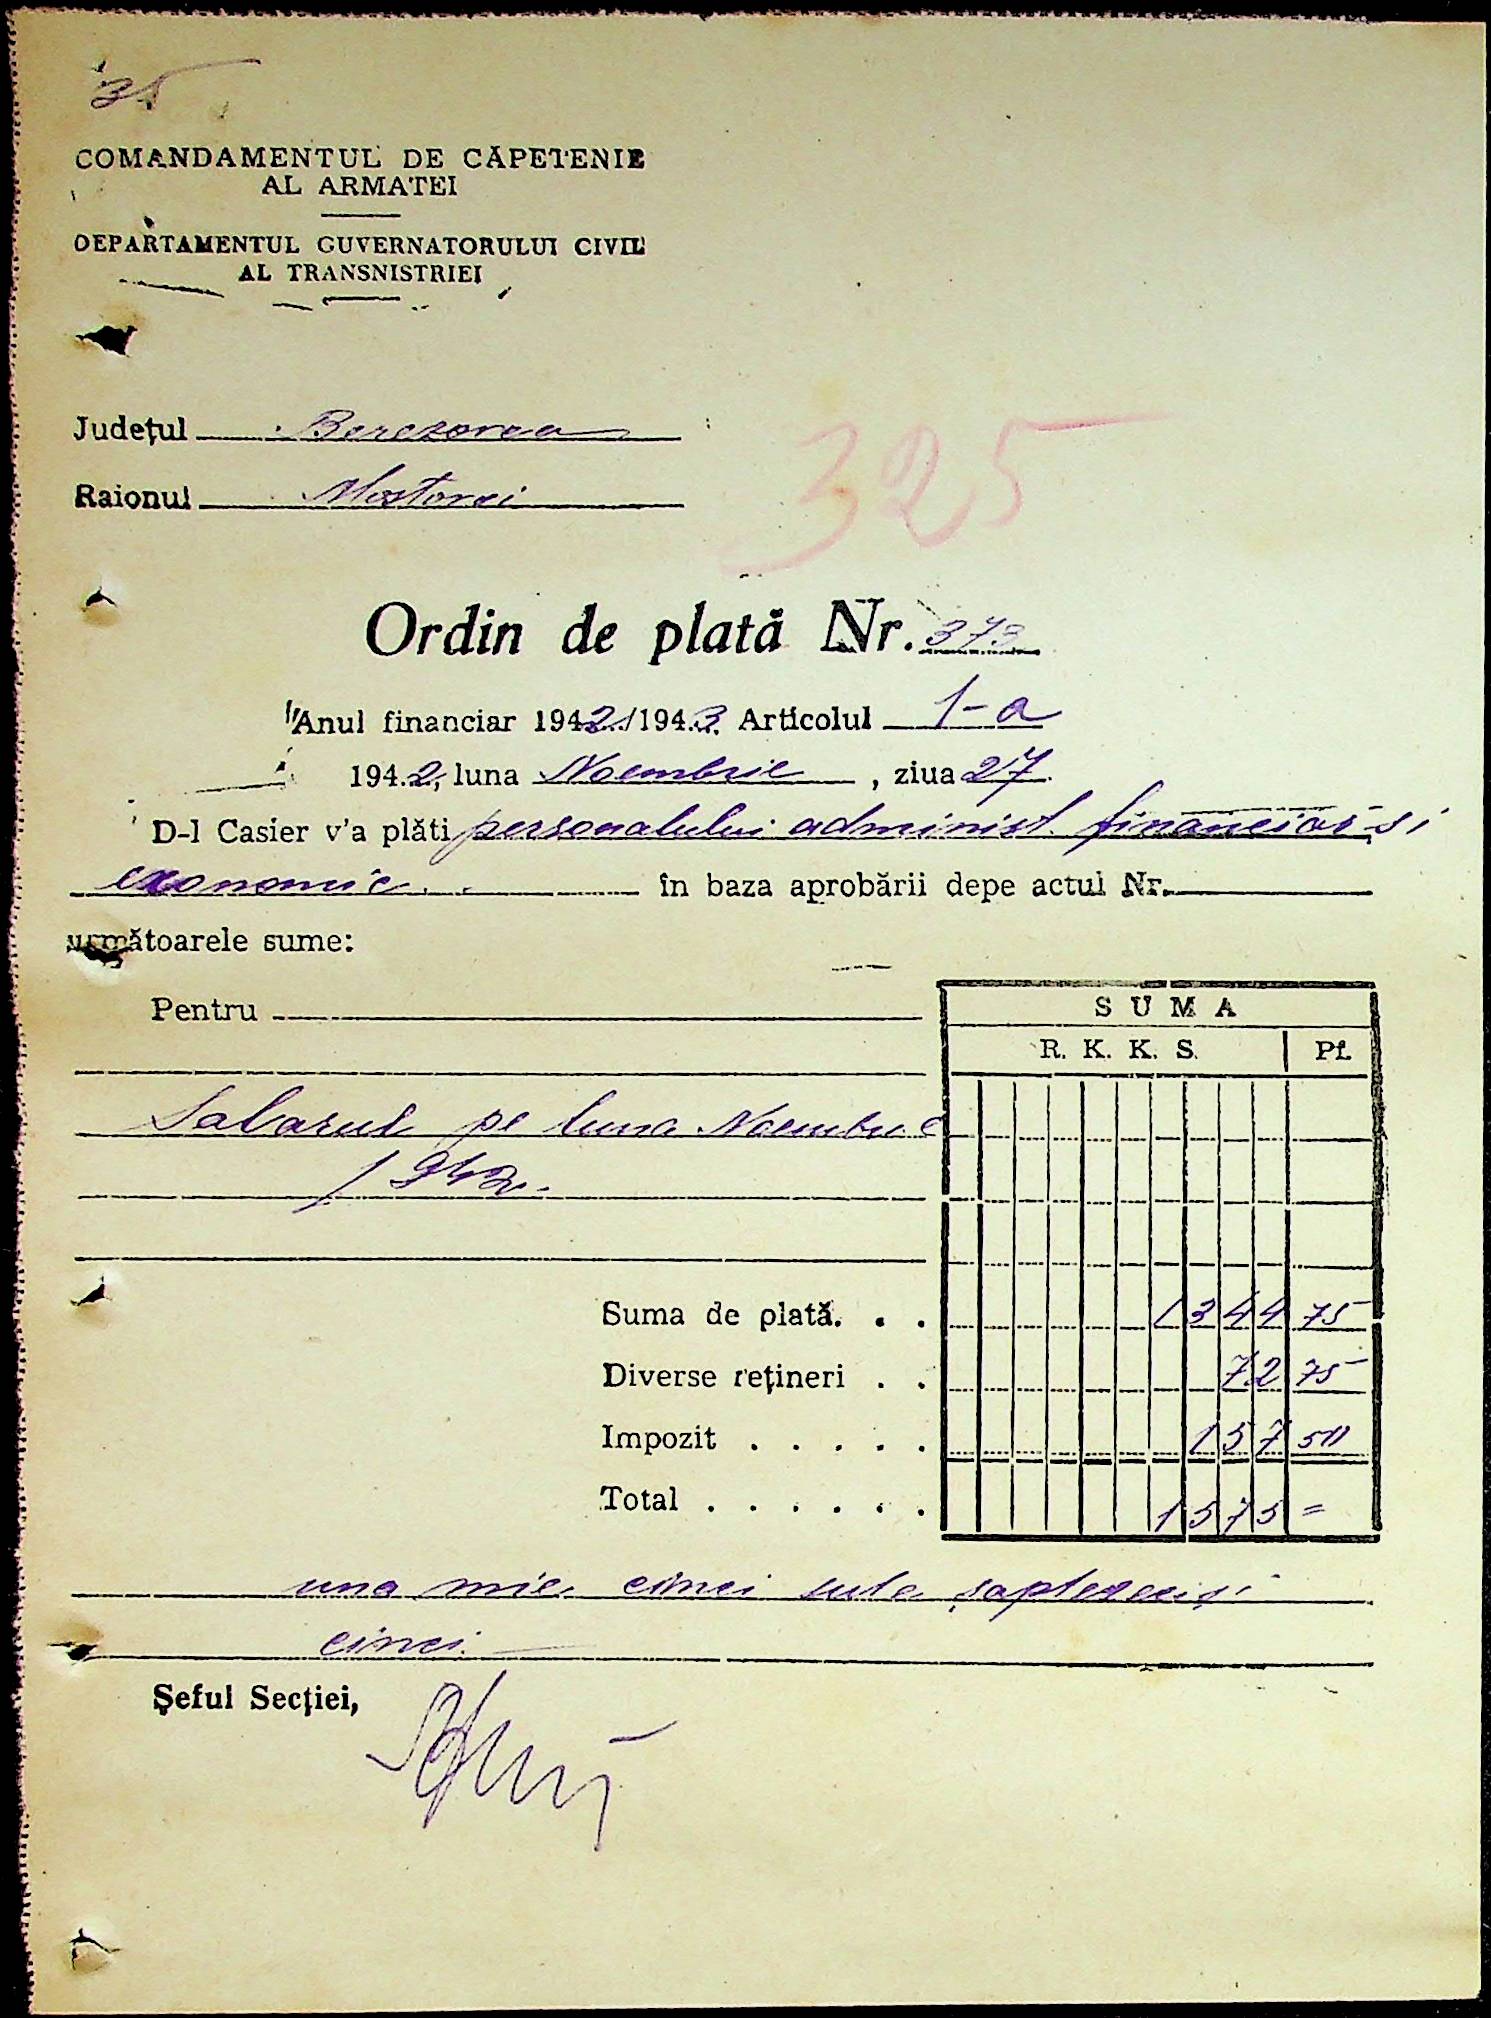 35
COMANDAMENTUL DE CĂPETENIE
AL ARMATEI
DEPARTAMENTUL GUVERNATORULUI CIVIL
AL TRANSNISTRIEI
Județul Berezovca
Raionul Mostovoi
325
Ordin de plată Nr. 373
Anul financiar 1942/1943 Articolul 1-a
1942, luna Noembrie, ziua 27
D-l Casier v'a plăti personalului administ. financiar și
economic. în baza aprobării depe actul Nr.
următoarele sume:
Pentru
SUMA
R. K. K. S. Pf.
Salarul pe luna Noembrie
1942.
Suma de plată. . . 1344 75
Diverse rețineri . . 72 75
Impozit . . . . . 157 50
Total . . . . . . 1575 =
una mie cinci sute șaptezeci și
cinci.
Șeful Secției,